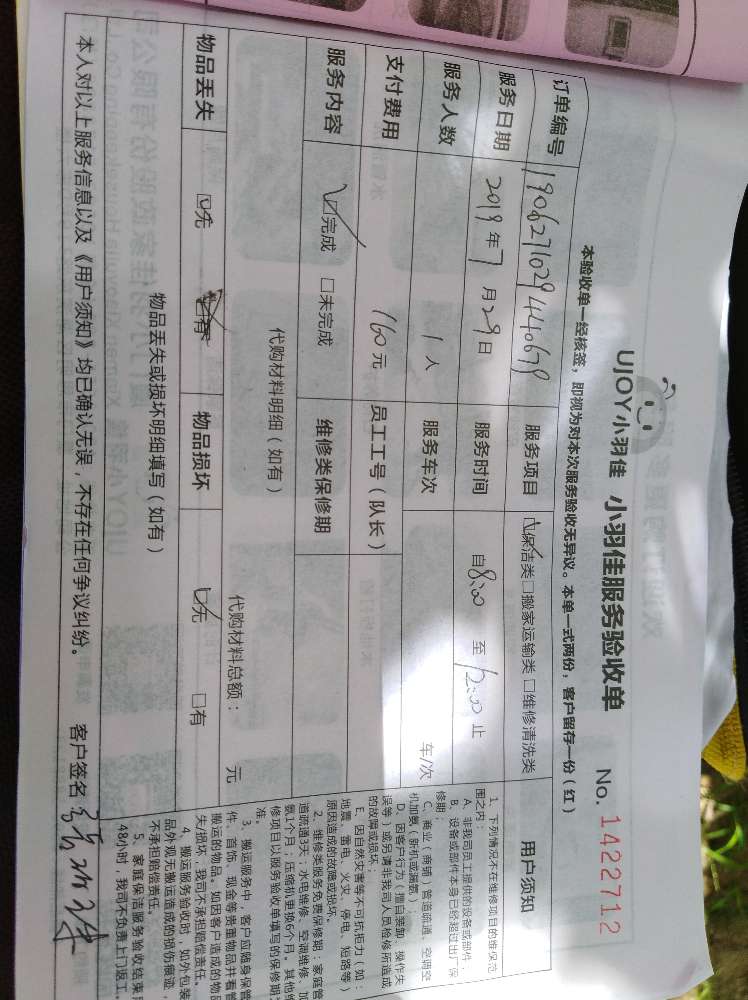 UJOY小羽佳 小羽佳服务验收单 No. 1422712
本验收单一经核签，即视为对本次服务验收无异议。本单一式两份，客户留存一份（红）
订单编号 服务项目 保洁类 □搬家运输类 □维修清洗类
服务日期 2019年7月29日 服务时间 自8:00 至12:00止
服务人数 1人 服务车次 车/次
支付费用 160元 员工工号（队长）
服务内容 ☑完成 □未完成 维修类保修期
代购材料明细（如有） 代购材料总额： 元
物品丢失 ☑无 有 物品损坏 ☑无 □有
物品丢失或损坏明细填写（如有）
本人对以上服务信息以及《用户须知》均已确认无误，不存在任何争议纠纷。 客户签名
用户须知
1、下列情况不在维修项目的维保范
围之内：
A、非我司员工提供的设备或部件；
B、设备或部件本身已经超过出厂保
修期；
C、商业（商铺）管道疏通、空调空
机加氨（新机或漏氨）；
D、因客户行为（擅自装卸、操作失
误等）或另请非我司人员检修所造成
的故障或损坏；
E、因自然灾害等不可抗拒力（如：
地震、雷电、火灾、停电、短路等）
原因造成的故障或损坏。
2、维修类服务免费保修期：家庭管
道疏通3天；水电维修、空调维修、加
氨1个月；压缩机更换6个月。其他维
修项目以服务验收单填写的保修期为
准。
3、搬运服务中，客户应随身保管
件、首饰、现金等贵重物品并看管
搬运的物品。如因客户造成的物品
失/损坏，我司不承担赔偿责任。
4、搬运服务验收时，如外包装
品外观无搬运造成的损伤痕迹，
不承担赔偿责任。
5、家庭保洁服务验收结束
48小时，我司不负责上门返工。